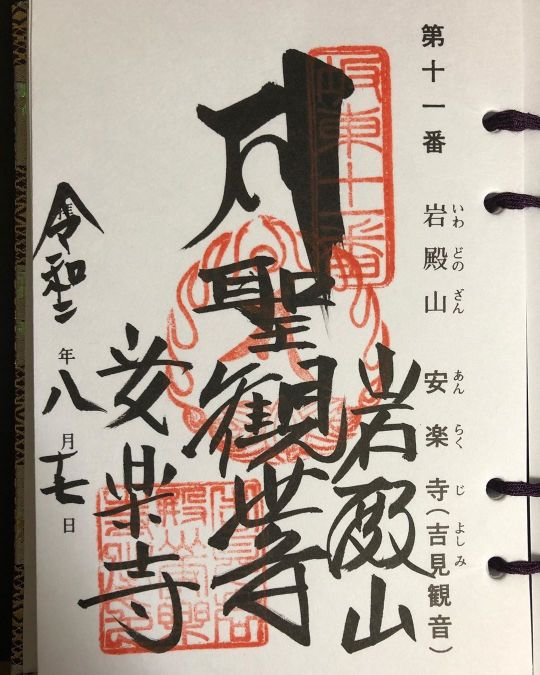 第十一番 岩殿山 安楽寺(吉見観音)
いわ どの ざん あん らく じ よしみ
坂東十一番
岩殿山
聖観世音
安楽寺
令和二年八月十七日